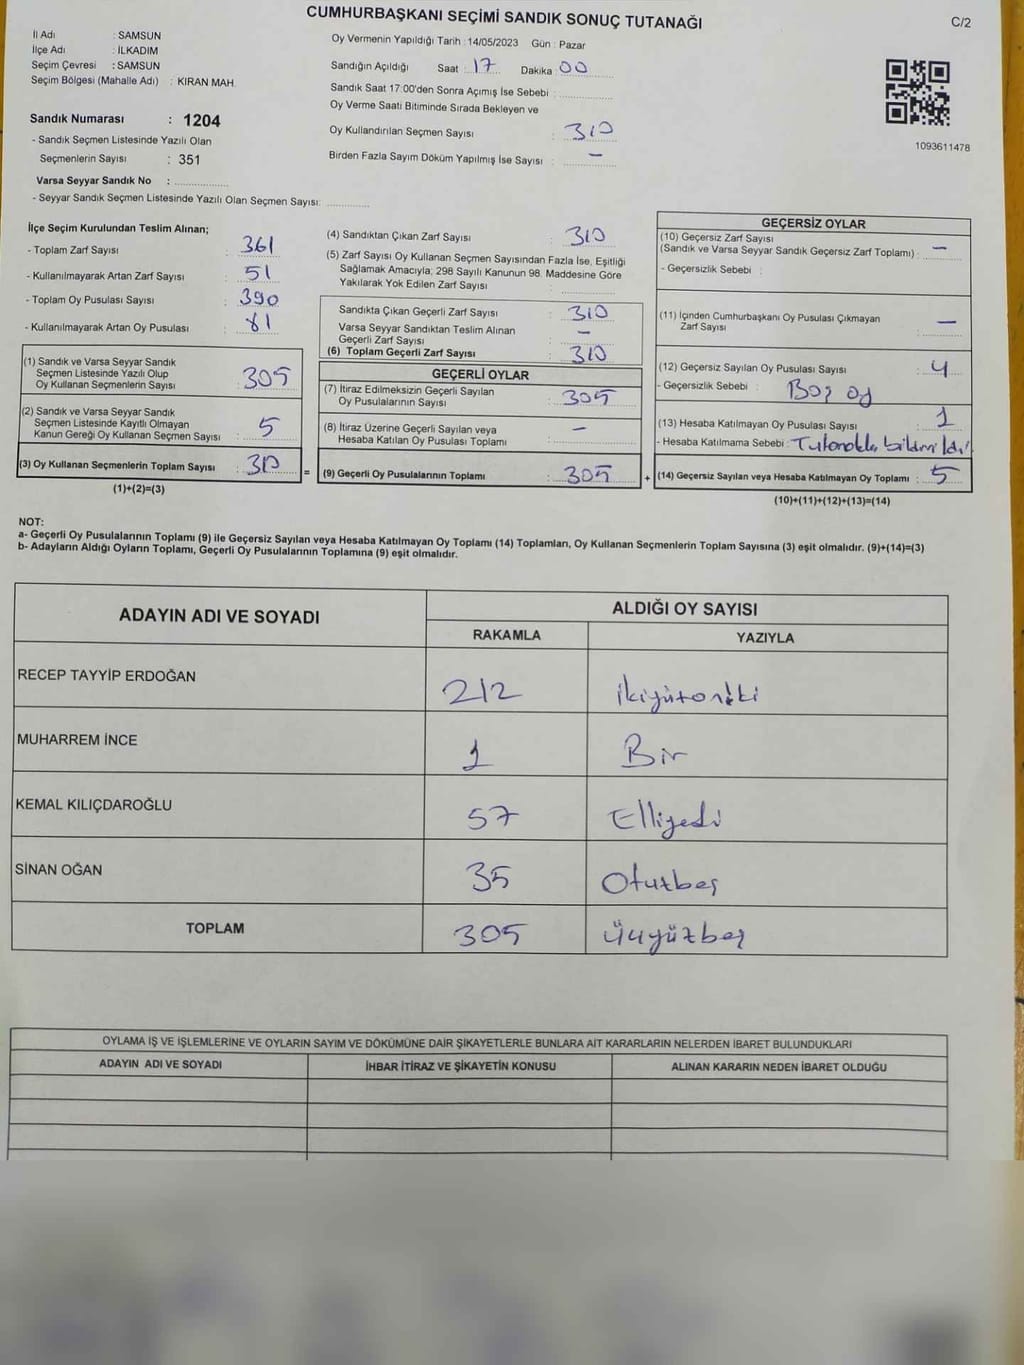 CUMHURBAŞKANI SEÇİMİ SANDIK SONUÇ TUTANAĞI
C/2
İl Adı : SAMSUN
İlçe Adı : İLKADIM
Seçim Çevresi : SAMSUN
Seçim Bölgesi (Mahalle Adı) : KIRAN MAH.
Sandık Numarası : 1204
- Sandık Seçmen Listesinde Yazılı Olan
Seçmenlerin Sayısı : 351
Varsa Seyyar Sandık No :
- Seyyar Sandık Seçmen Listesinde Yazılı Olan Seçmen Sayısı:
Oy Vermenin Yapıldığı Tarih : 14/05/2023 Gün : Pazar
Sandığın Açıldığı Saat : 17 Dakika : 00
Sandık Saat 17:00'den Sonra Açımış İse Sebebi :
Oy Verme Saati Bitiminde Sırada Bekleyen ve
Oy Kullandırılan Seçmen Sayısı : 310
Birden Fazla Sayım Döküm Yapılmış İse Sayısı : —
1093611478
İlçe Seçim Kurulundan Teslim Alınan;
- Toplam Zarf Sayısı : 361
- Kullanılmayarak Artan Zarf Sayısı : 51
- Toplam Oy Pusulası Sayısı : 390
- Kullanılmayarak Artan Oy Pusulası : 81
(1) Sandık ve Varsa Seyyar Sandık
Seçmen Listesinde Yazılı Olup
Oy Kullanan Seçmenlerin Sayısı : 305
(2) Sandık ve Varsa Seyyar Sandık
Seçmen Listesinde Kayıtlı Olmayan
Kanun Gereği Oy Kullanan Seçmen Sayısı : 5
(3) Oy Kullanan Seçmenlerin Toplam Sayısı : 310 =
(1)+(2)=(3)
(4) Sandıktan Çıkan Zarf Sayısı : 310
(5) Zarf Sayısı Oy Kullanan Seçmen Sayısından Fazla İse, Eşitliği
Sağlamak Amacıyla; 298 Sayılı Kanunun 98. Maddesine Göre
Yakılarak Yok Edilen Zarf Sayısı :
Sandıkta Çıkan Geçerli Zarf Sayısı : 310
Varsa Seyyar Sandıktan Teslim Alınan
Geçerli Zarf Sayısı : —
(6) Toplam Geçerli Zarf Sayısı : 310
GEÇERLİ OYLAR
(7) İtiraz Edilmeksizin Geçerli Sayılan
Oy Pusulalarının Sayısı : 305
(8) İtiraz Üzerine Geçerli Sayılan veya
Hesaba Katılan Oy Pusulası Toplamı : —
(9) Geçerli Oy Pusulalarının Toplamı : 305 +
GEÇERSİZ OYLAR
(10) Geçersiz Zarf Sayısı
(Sandık ve Varsa Seyyar Sandık Geçersiz Zarf Toplamı) : —
- Geçersizlik Sebebi :
(11) İçinden Cumhurbaşkanı Oy Pusulası Çıkmayan
Zarf Sayısı : —
(12) Geçersiz Sayılan Oy Pusulası Sayısı : 4
- Geçersizlik Sebebi : Boş oy
(13) Hesaba Katılmayan Oy Pusulası Sayısı : 1
- Hesaba Katılmama Sebebi : Tutanakla bildirildi
(14) Geçersiz Sayılan veya Hesaba Katılmayan Oy Toplamı : 5
(10)+(11)+(12)+(13)=(14)
NOT:
a- Geçerli Oy Pusulalarının Toplamı (9) ile Geçersiz Sayılan veya Hesaba Katılmayan Oy Toplamı (14) Toplamları, Oy Kullanan Seçmenlerin Toplam Sayısına (3) eşit olmalıdır. (9)+(14)=(3)
b- Adayların Aldığı Oyların Toplamı, Geçerli Oy Pusulalarının Toplamına (9) eşit olmalıdır.
ADAYIN ADI VE SOYADI ALDIĞI OY SAYISI
RAKAMLA YAZIYLA
RECEP TAYYİP ERDOĞAN 212 ikiyüzoniki
MUHARREM İNCE 1 Bir
KEMAL KILIÇDAROĞLU 57 Elliyedi
SİNAN OĞAN 35 Otuzbeş
TOPLAM 305 üçyüzbeş
OYLAMA İŞ VE İŞLEMLERİNE VE OYLARIN SAYIM VE DÖKÜMÜNE DAİR ŞİKAYETLERLE BUNLARA AİT KARARLARIN NELERDEN İBARET BULUNDUKLARI
ADAYIN ADI VE SOYADI İHBAR İTİRAZ VE ŞİKAYETİN KONUSU ALINAN KARARIN NEDEN İBARET OLDUĞU